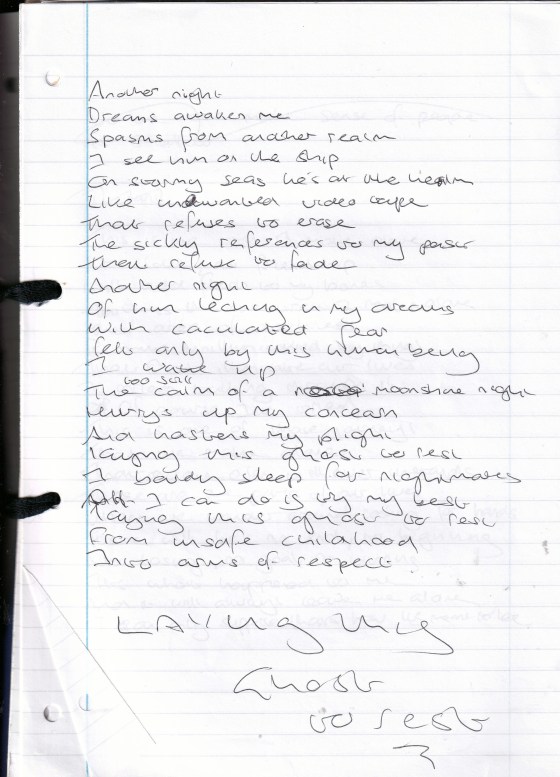 Another night
Dreams awaken me
Spasms from another realm
I see him on the ship
On stormy seas he's at the healm
Like unwanted video tape
That refuses to erase
The sickly references to my past
That refuse to fade
Another night
Of him leching in my dreams
With caculated fear
felt only by this human being
I wake up
too still
The calm of a moonshine night
Hurrys up my concearn
And hastens my plight
Laying this ghost to rest
I barely sleep for nightmares
All I can do is try my best
Laying this ghost to rest
From unsafe childhood
Into arms of respect
LAYing this
Ghost
to rest